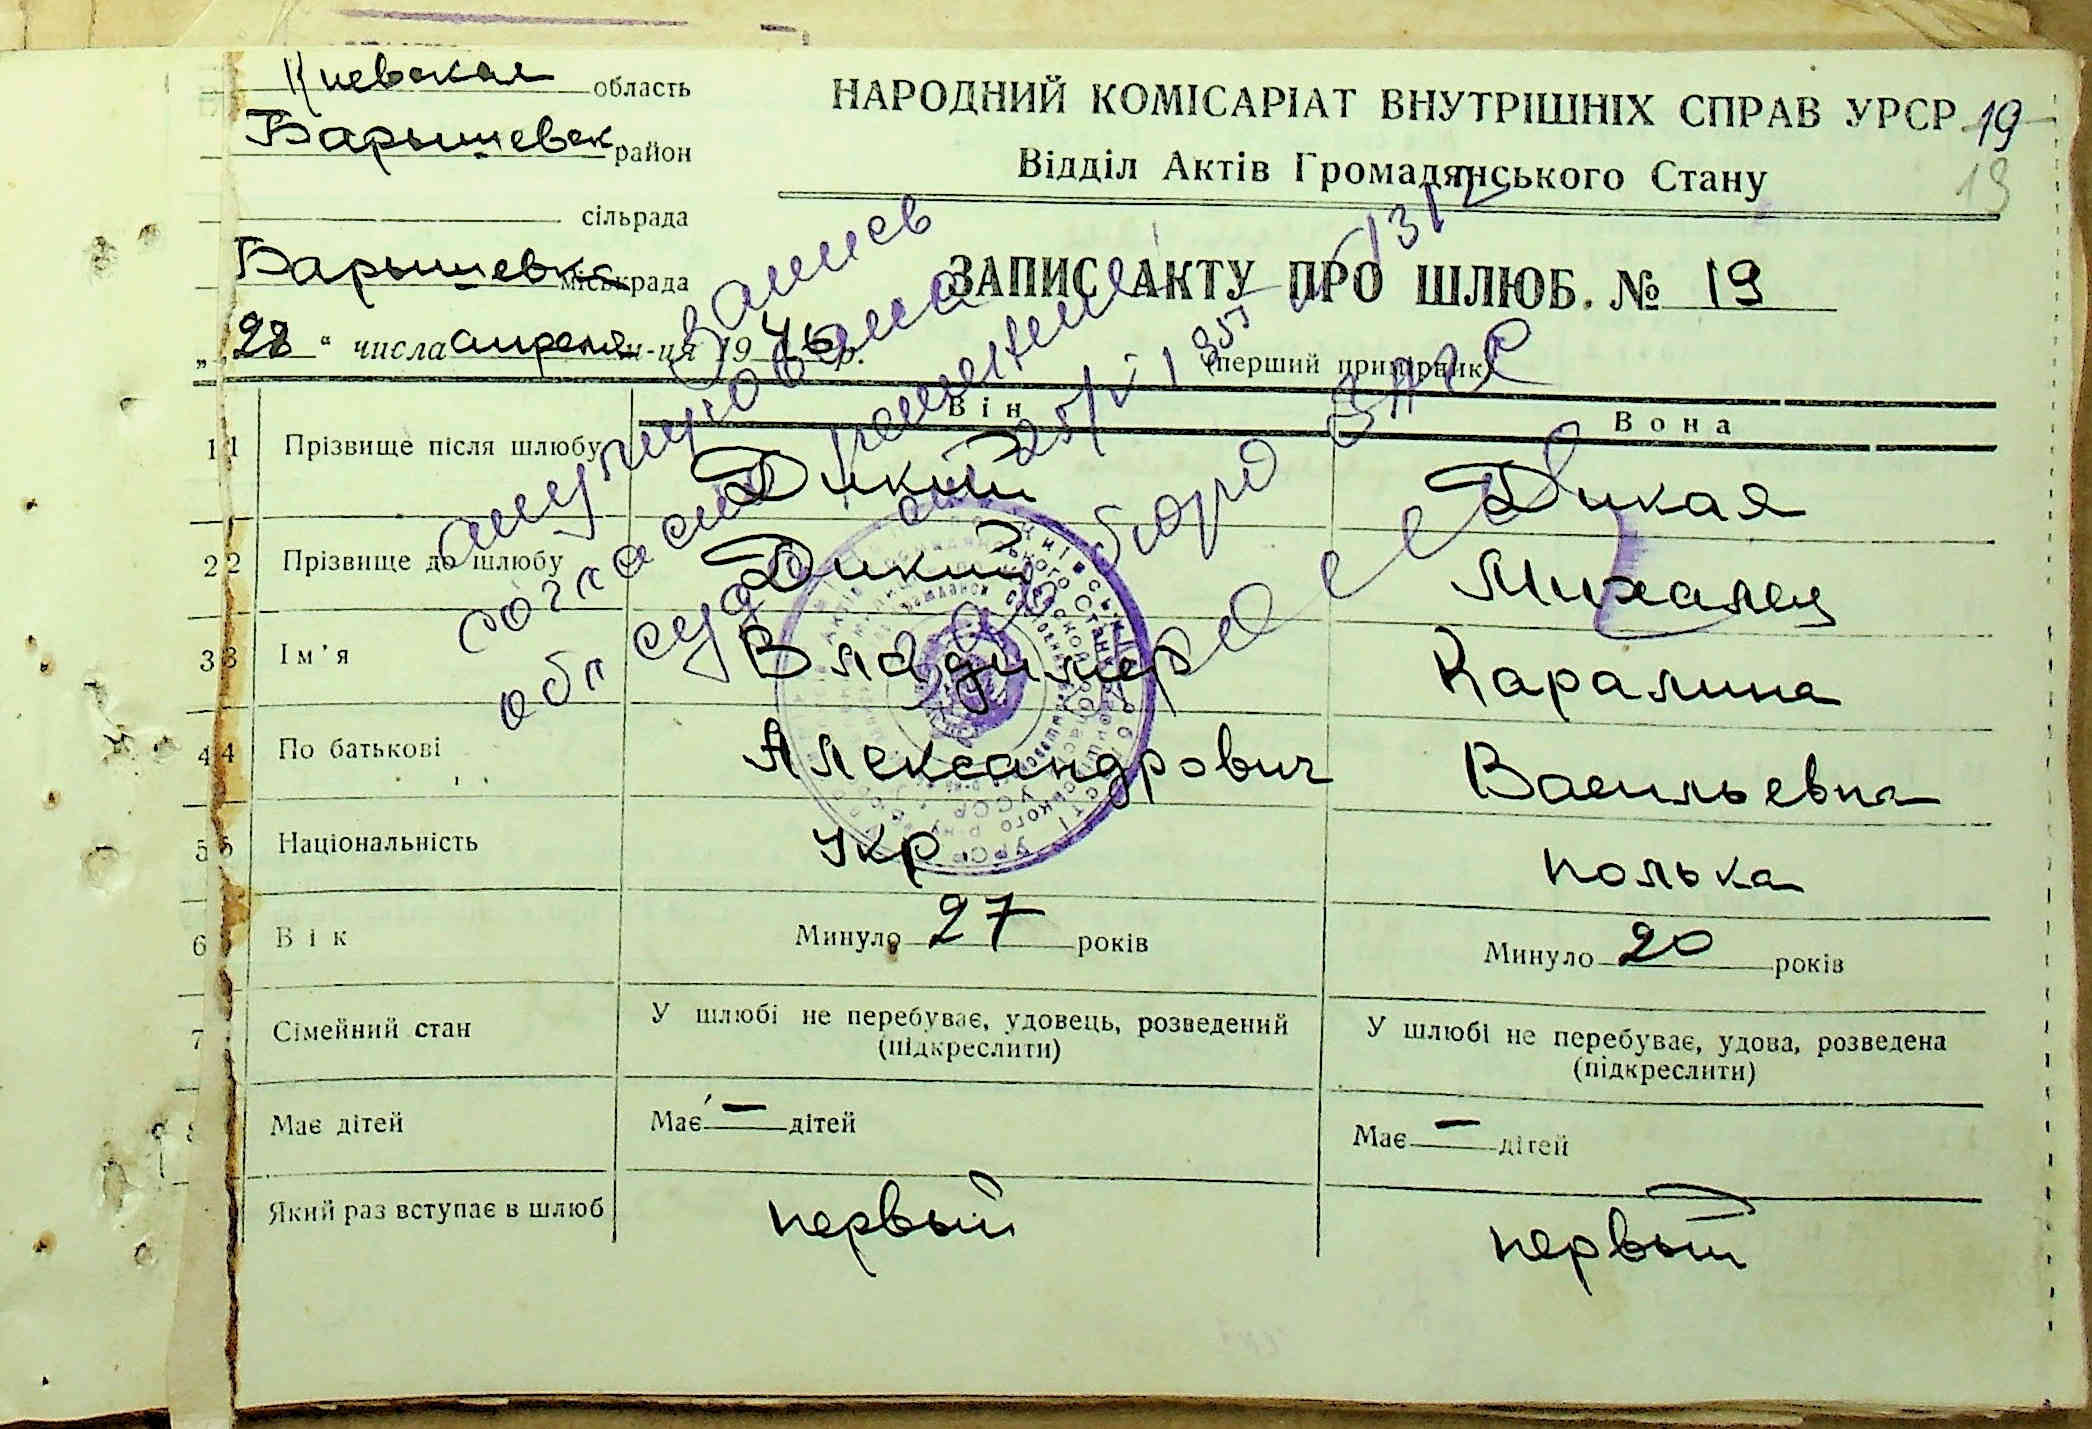 Киевская область
Барышевск район
сільрада
Барышевка міськрада
„28“ числа апреля м-ця 1946 р.
НАРОДНИЙ КОМІСАРІАТ ВНУТРІШНІХ СПРАВ УРСР 19
Відділ Актів Громадянського Стану 19
ЗАПИС АКТУ ПРО ШЛЮБ. № 19
(перший примірник)
Запись
анулирована
согласно решения
обл суда от 25/V 1955
зав бюро ЗАГС
Він Вона
1 1 Прізвище після шлюбу Дикий Дикая
2 2 Прізвище до шлюбу Дикий Михалец
3 3 Ім'я Владимер Каралина
4 4 По батькові Александрович Васильевна
5 5 Національність Укр полька
6 Вік Минуло 27 років Минуло 20 років
7 Сімейний стан У шлюбі не перебуває, удовець, розведений (підкреслити) У шлюбі не перебуває, удова, розведена (підкреслити)
8 Має дітей Має — дітей Має — дітей
Який раз вступає в шлюб первый первый